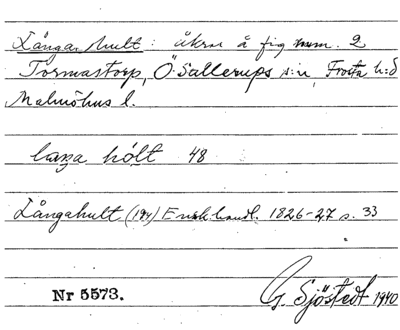 Långahult: åkrar å fig num. 2
Tormastorp, Ö. Sallerups s:n, Frosta h:d
Malmöhus l.
laŋa hólt 48
Långahult (194) Ensk.handl. 1826-27 s. 33
Nr 5573.
G. Sjöstedt 1940